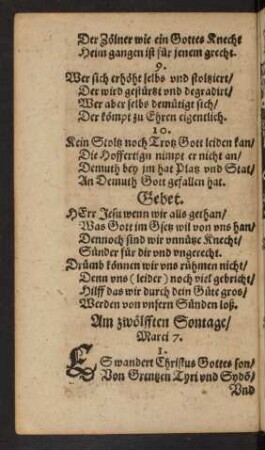 Der Zölner wie ein Gottes Knecht
Heim gangen ist für jenem grecht.
9.
Wer sich erhöht selbs vnd stoltziert/
Der wird gestürtzt vnd degradirt/
Wer aber selbs demütigt sich/
Der kömpt zu Ehren eigentlich.
10.
Kein Stoltz noch Trotz Gott leiden kan/
Die Hoffertign nimpt er nicht an/
Demuth bey jm hat Platz vnd Stat/
An Demuth Gott gefallen hat.
Gebet.
HErr Jesu wenn wir alls gethan/
Was Gott im Gsetz wil von vns han/
Dennoch sind wir vnnütze Knecht/
Sünder für dir vnd vngerecht.
Drümb können wir vns rühmen nicht/
Denn vns (leider) noch viel gebricht/
Hilff das wir durch dein Güte gros/
Werden von vnsern Sünden loß.
Am zwölfften Sontage/
Marci 7.
1.
ES wandert Christus Gottes son/
Von Grentzen Tyri vnd Sydö/
Vnd